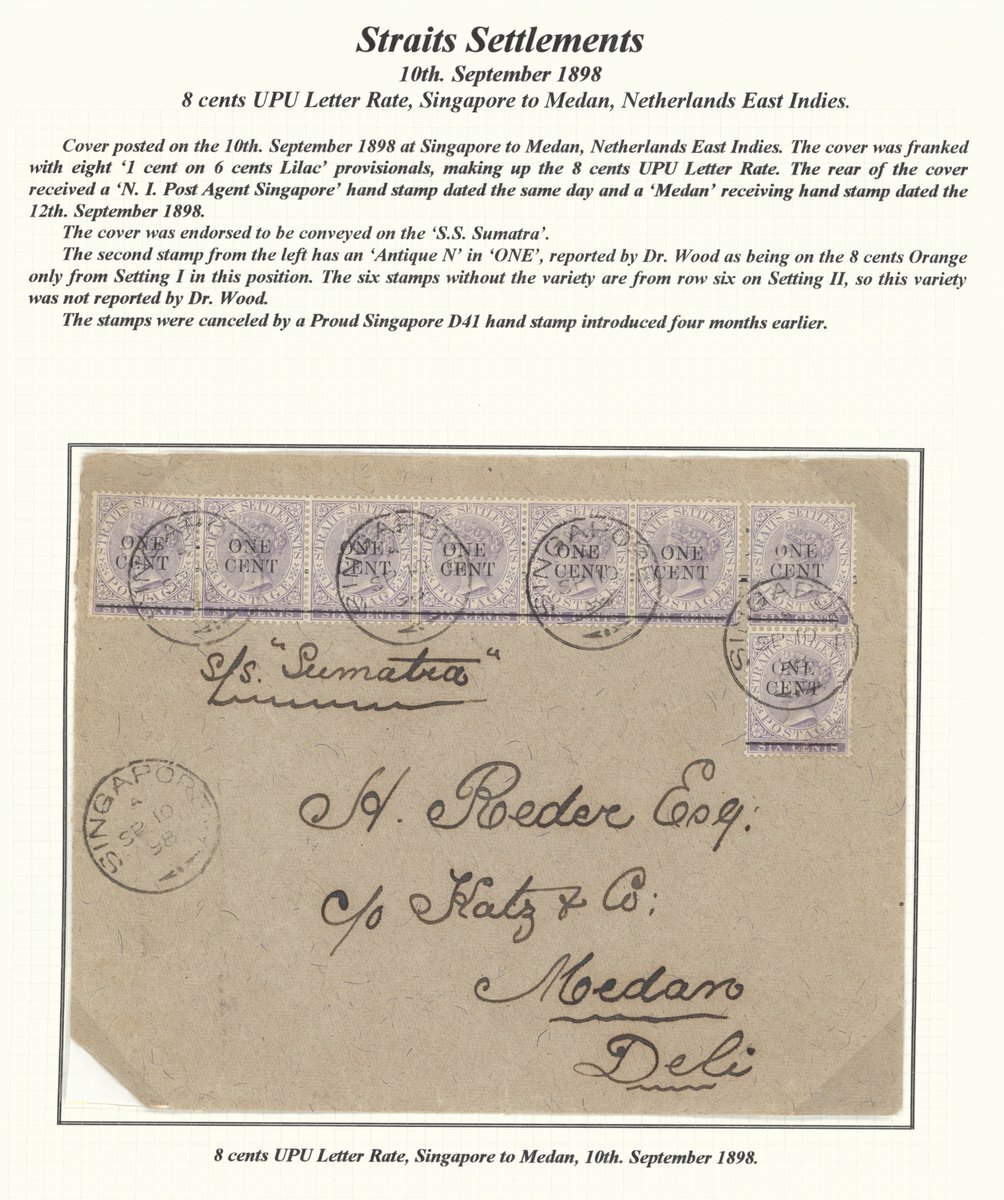 Straits Settlements
10th. September 1898
8 cents UPU Letter Rate, Singapore to Medan, Netherlands East Indies.
Cover posted on the 10th. September 1898 at Singapore to Medan, Netherlands East Indies. The cover was franked
with eight ‘1 cent on 6 cents Lilac’ provisionals, making up the 8 cents UPU Letter Rate. The rear of the cover
received a ‘N. I. Post Agent Singapore’ hand stamp dated the same day and a ‘Medan’ receiving hand stamp dated the
12th. September 1898.
The cover was endorsed to be conveyed on the ‘S.S. Sumatra’.
The second stamp from the left has an ‘Antique N’ in ‘ONE’, reported by Dr. Wood as being on the 8 cents Orange
only from Setting I in this position. The six stamps without the variety are from row six on Setting II, so this variety
was not reported by Dr. Wood.
The stamps were canceled by a Proud Singapore D41 hand stamp introduced four months earlier.
STRAITS SETTLEMENTS STRAITS SETTLEMENTS STRAITS SETTLEMENTS STRAITS SETTLEMENTS STRAITS SETTLEMENTS STRAITS SETTLEMENTS STRAITS SETTLEMENTS
SINGAPORE SINGAPORE SINGAPORE
ONE ONE ONE ONE ONE ONE ONE
CENT CENT CENT CENT CENT CENT CENT
POSTAGE POSTAGE POSTAGE POSTAGE POSTAGE POSTAGE POSTAGE
SIX CENTS SIX CENTS SIX CENTS SIX CENTS SIX CENTS SIX CENTS SIX CENTS
SINGAPORE
SP 10
STRAITS SETTLEMENTS
ONE
CENT
POSTAGE
SIX CENTS
s/s. "Sumatra"
SINGAPORE
A
10
SP
98
H. Reder Esq:
c/o Katz & Co:
Medan
Deli
8 cents UPU Letter Rate, Singapore to Medan, 10th. September 1898.